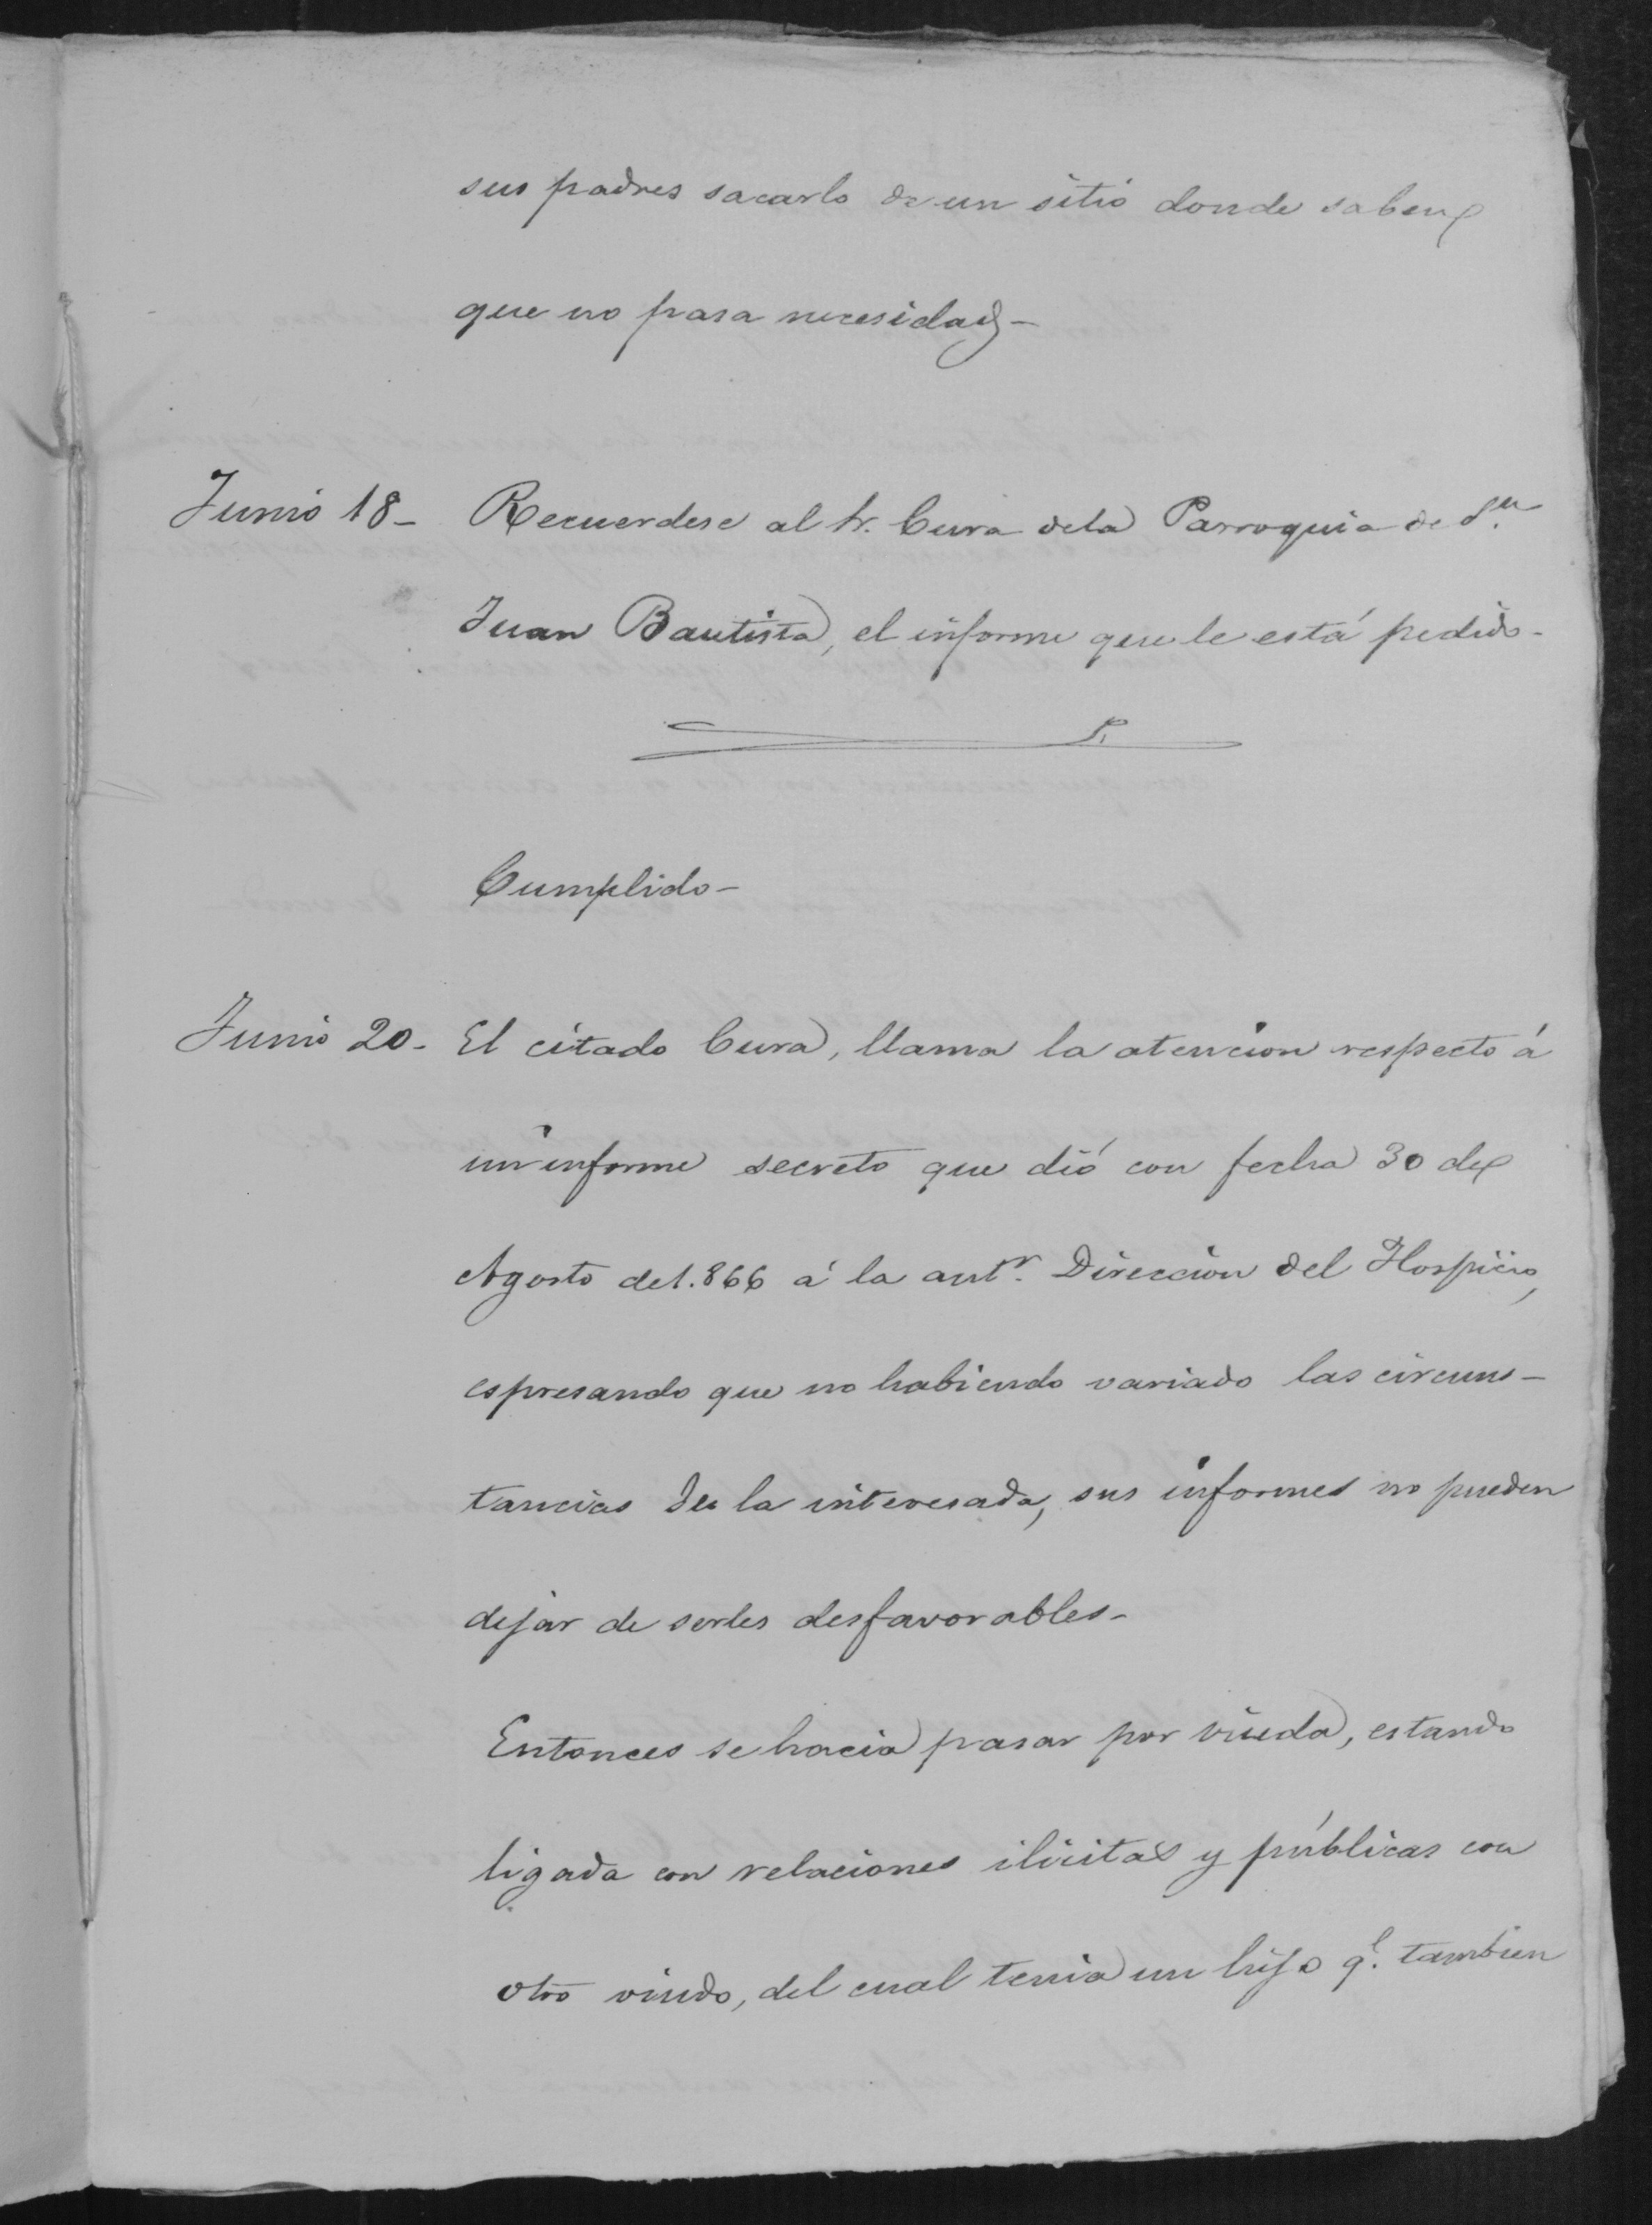 sus padres sacarlo de un sitio donde saben
que no pasa necesidad-
Junio 18- Recuerdese al Sr. Cura dela Parroquia de Sn.
Juan Bautista, el informe que le está pedido-
Cumplido-
Junio 20- El citado Cura, llama la atencion respecto á
un informe secreto que dió con fecha 30 de
Agosto de 1.866 á la antr. Direccion del Hospicio,
espresando que no habiendo variado las circuns-
tancias de la interesada, sus informes no pueden
dejar de serles desfavorables-
Entonces se hacia pasar por viuda, estando
ligada con relaciones ilicitas y públicas con
otro viudo, del cual tenia un hijo ql. tambien